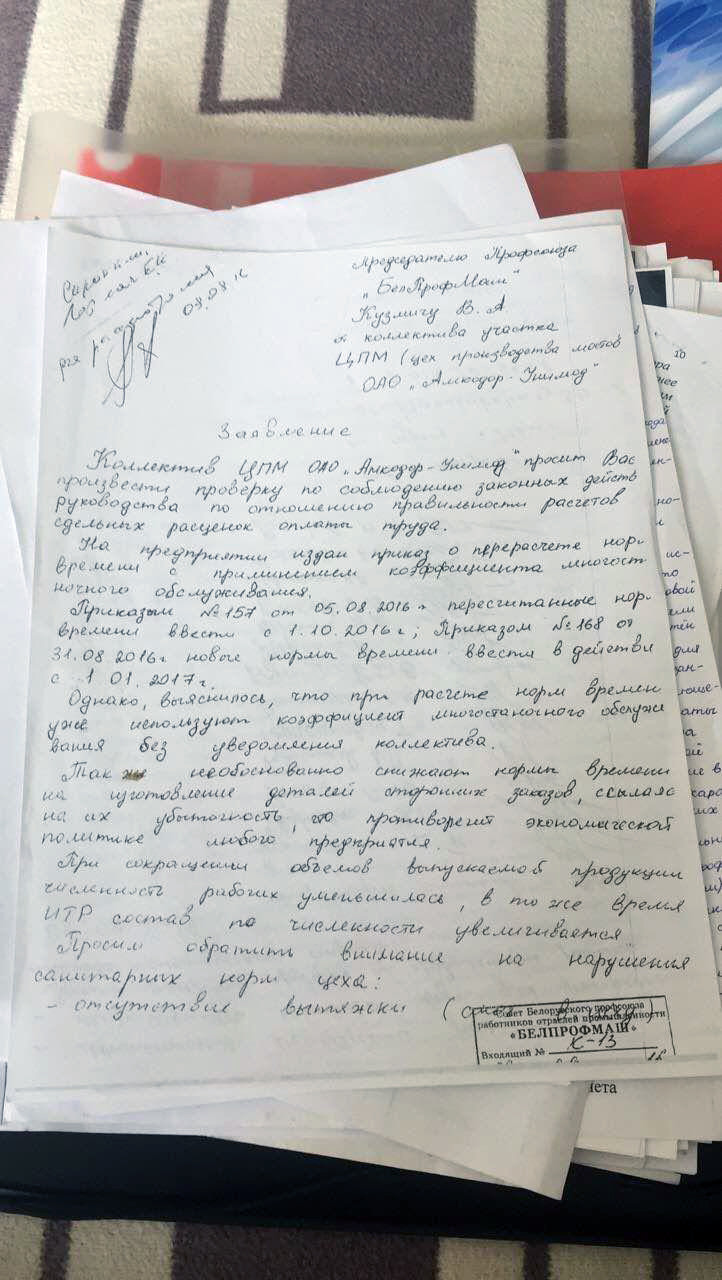 08.08.16
Председателю Профсоюза
„БелПрофМаш"
Кузмичу В. А
от коллектива участка
ЦПМ (цех производства мостов
ОАО „Амкодор-Унимод"
Заявление
Коллектив ЦПМ ОАО „Амкодор-Унимод" просит Вас
произвести проверку по соблюдению законных действ
руководства по отношению правильности расчетов
сдельных расценок оплаты труда.
На предприятии издан приказ о перерасчете нор-
времени с применением коэффициента многост
ночного обслуживания.
Приказом №157 от 05.08.2016г пересчитанные нор-
времени ввести с 1.10.2016г; Приказом №168 от
31.08 2016г новые нормы времени ввести в действи
с 1 01. 2017г.
Однако, выяснилось, что при расчете норм времен
уже используют коэффициент многостаночного обслужи
вания без уведомления коллектива.
Так же необоснованно снижают нормы времени
на изготовление деталей сторонних заказов, ссылаяс
на их убыточность, это противоречит экономической
политике любого предприятия.
При сокращении объемов выпускаемой продукции
численность рабочих уменьшилась, в то же время
ИТР состав по численности увеличивается
Просим обратить внимание на нарушения
санитарных норм цеха:
- отсутствие вытяжки (
Совет Белорусского профсоюза
работников отраслей промышленности
«БЕЛПРОФМАШ»
Входящий № К-13
16
10